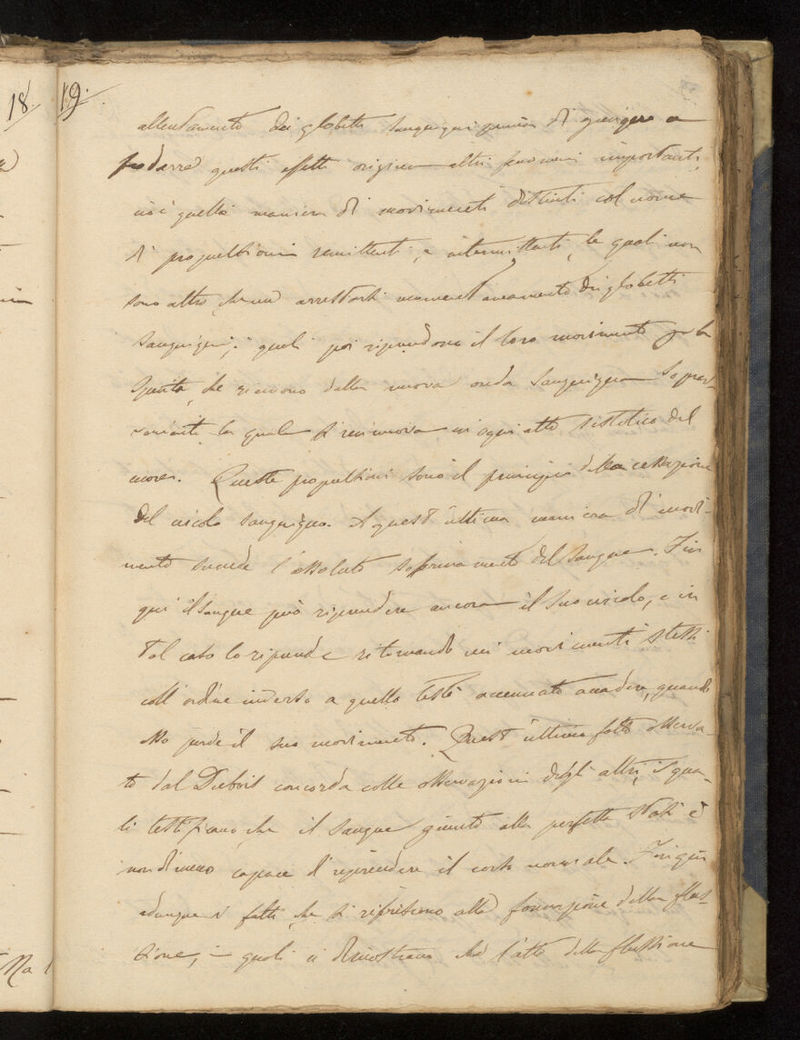 18. 19.
allentamento dei globetti sanguigni prima di giungere a
produrre questi effetti origina altri fenomeni importanti,
cioè quella maniera di movimenti distinti col nome
di propulsioni remittenti, e intermittenti, le quali non
sono altro, che un arrestarsi momentaneamento dei globetti
sanguigni, i quali poi riprendono il loro movimento per la
spinta, che ricevono dalla nuova onda sanguigna soprav-
veniente, la quale si rinnova in ogni atto sistolico del
cuore. Queste propulsioni sono il principio della cessazione
del circolo sanguigno. A quest'ultima maniera di movi-
mento succede l'assoluto soffermamento del sangue. Fin
qui il sangue può riprendere ancora il suo circolo, e in
tal caso lo riprende ritornando nei movimenti stessi
coll'ordine inverso a quello testè accennato accadere, quando
esso perde il suo movimento. Quest'ultimo fatto osserva-
to dal Dubois concorda colle osservazioni degli altri, i qua-
li testificano, che il sangue giunto alla perfetta stasi è
nondimeno capace di riprendere il corso normale. Fin qui
adunque i fatti, che si riferiscono alla formazione della flus-
sione, i quali ci dimostrano che l'atto della flussione